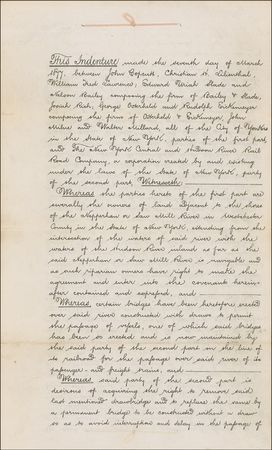 This Indenture made the seventh day of March
1897, between John Copcutt, Christian H. Lilienthal
William Fred Lawrence, Edward Uriah Slade and
Nelson Bailey composing the firm of Bailey & Slade,
Josiah Rich, George Ostcheld and Rudolph Eickemeyer
composing the firm of Ostcheld & Eickemeyer John
Milne and Walter Millard, all of the City of Yonkers
in the State of New York, parties of the first part
and The New York Central and Hudson River Rail
Road Company, a corporation created by and existing
under the laws of the State of New York, party
of the second part, Witnesseth:
Whereas the parties hereto of the first part are
severally the owners of land adjacent to the shore
of the Nepperhan or Saw Mill River in Westchester
County in the State of New York, extending from the
intersection of the waters of said river with the
waters of the Hudson River inland as far as the
said Nepperhan or Saw Mill River is navigable and
as such riparian owners have right to make the
agreement and enter into the covenants herein-
after contained and expressed, and
Whereas, certain bridges have been heretofore erected
over said river constructed with draws to permit
the passage of vessels, one of which said bridges
has been so erected and is now maintained by
the said party of the second part in the line of
its railroad for the passage over said river of its
passenger and freight trains, and
Whereas said party of the second part is
desirous of acquiring the right to remove said
last mentioned drawbridge and to replace the same by
a permanent bridge to be constructed without a draw
so as to avoid interruption and delay in the passage of